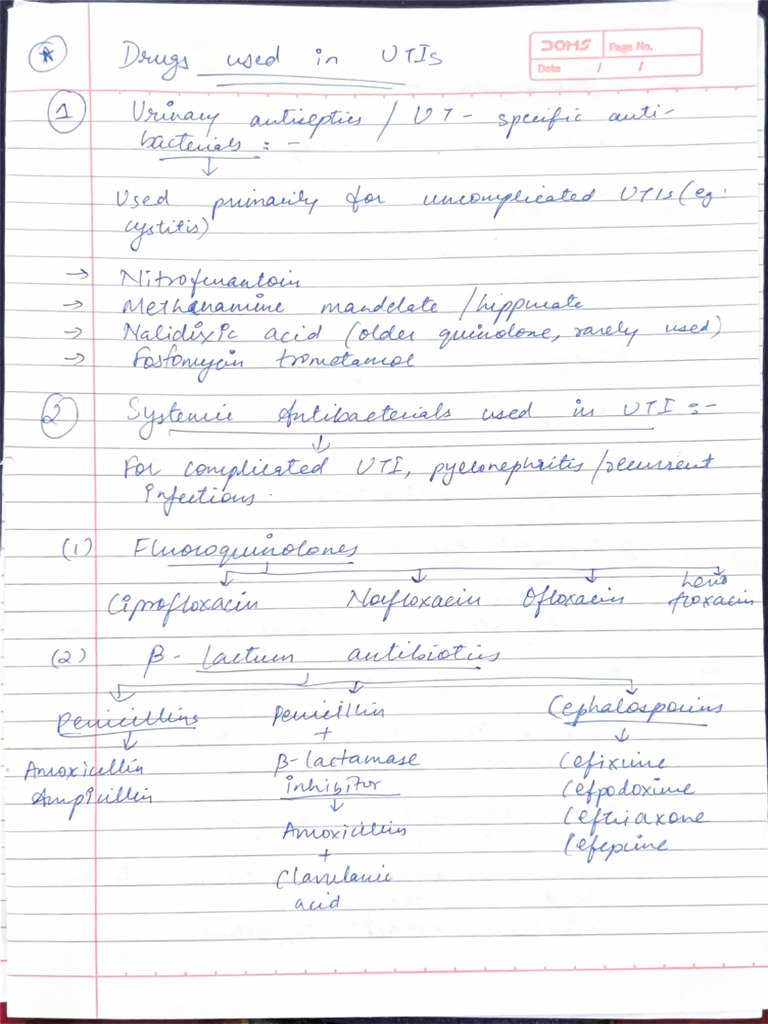 * Drugs used in UTIs
DOMS Page No.
Date / /
1 Urinary antiseptics / UT - specific anti-
bacterials :-
↓
Used primarily for uncomplicated UTIs (eg:
cystitis)
→ Nitrofurantoin
→ Methenamine mandelate / hippurate
→ Nalidixic acid (older quinolone, rarely used)
→ Fosfomycin trometamol
2 Systemic Antibacterials used in UTI :-
↓
For complicated UTI, pyelonephritis / recurrent
infections.
(1) Fluoroquinolones
Ciprofloxacin Norfloxacin Ofloxacin Levo
floxacin
(2) β - lactum antibiotics
Penicillins Penicillin Cephalosporins
↓ + ↓
Amoxicillin β-lactamase Cefixime
Ampicillin inhibitor Cefpodoxime
↓ Ceftriaxone
Amoxicillin Cefepime
+
Clavulanic
acid